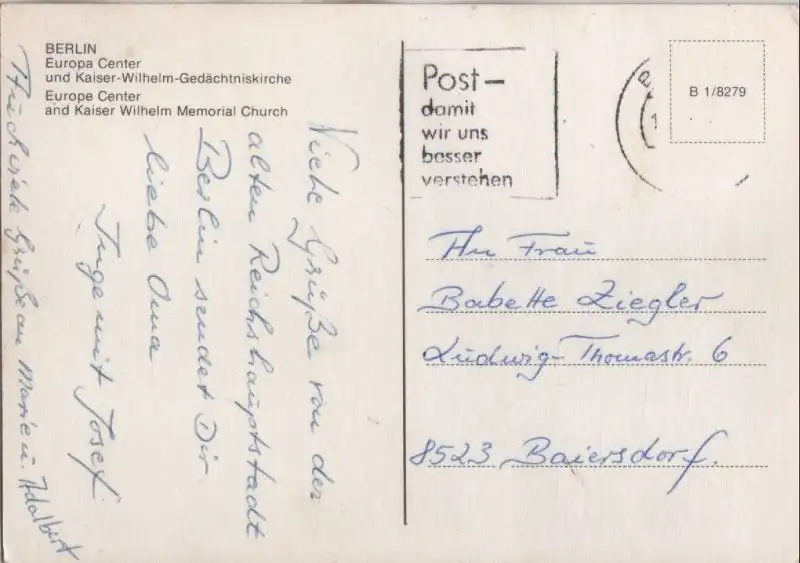 BERLIN
Europa Center
und Kaiser-Wilhelm-Gedächtniskirche
Europe Center
and Kaiser Wilhelm Memorial Church
Viele Grüße von der
alten Reichshauptstadt
Berlin sendet Dir
liebe Oma
Inge mit Josef
Auch viele Grüße an Marie u. Adalbert
Post-
damit
wir uns
besser
verstehen
B 1/8279
An Frau
Babette Ziegler
Ludwig-Thomastr. 6
8523 Baiersdorf.